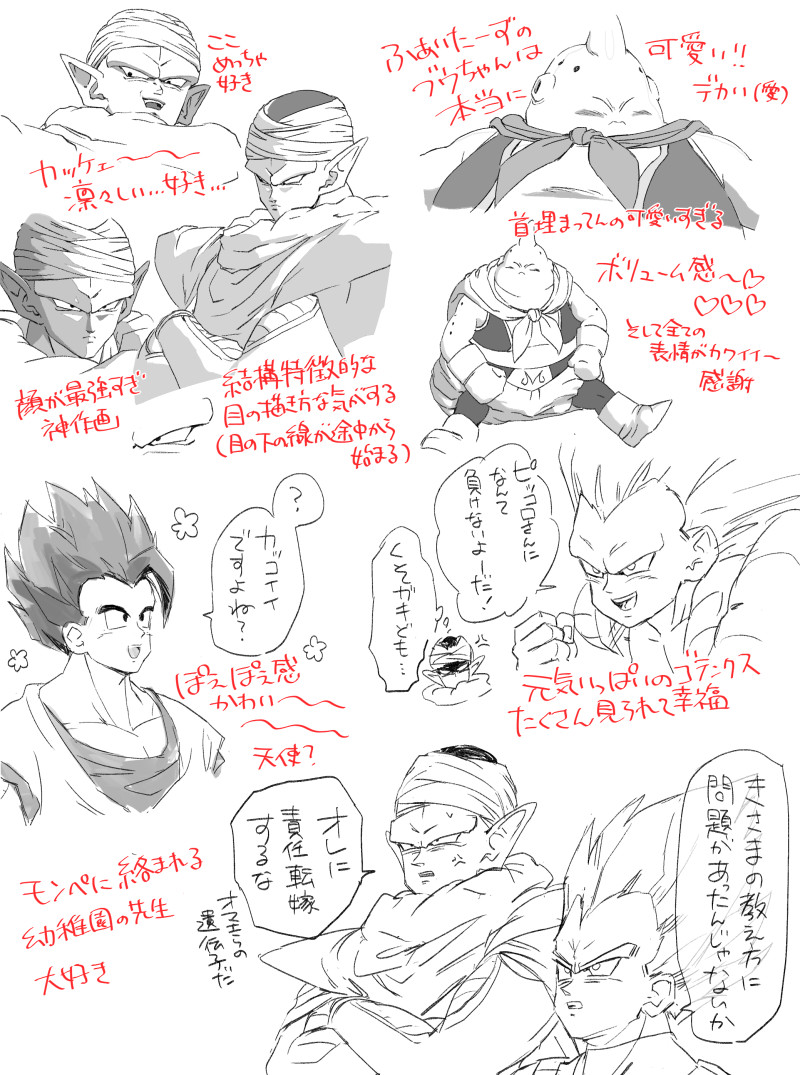 ここ
めっちゃ
好き
カッケェ～～
凛々しい…好き…
顔が最強すぎ
神作画
結構特徴的な
目の描き方な気がする
(目の下の線が途中から
始まる)
ふぁいたーずの
ブウちゃんは
本当に
可愛い!!
デカい(愛)
首埋まってんの可愛いすぎる
ボリューム感～♡
♡♡♡
そして全ての
表情がカワイイ～
感謝
?
カッコイイ
ですよね?
ぽえぽえ感
かわい～～
～～
天使?
ピッコロさんに
なんて
負けないよーだ!
くそガキども…
元気いっぱいのゴテンクス
たくさん見られて幸福
きさまの教え方に
問題があったんじゃないか
オレに
責任転嫁
するな
オマエらの
遺伝子だ
モンペに絡まれる
幼稚園の先生
大好き